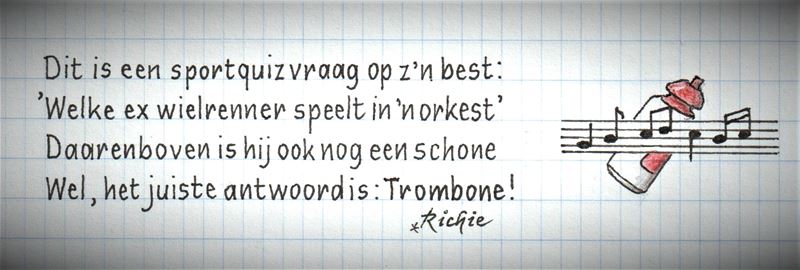 Dit is een sportquizvraag op z'n best:
'Welke ex wielrenner speelt in 'n orkest'
Daarenboven is hij ook nog een schone
Wel, het juiste antwoord is: Trombone!
*Richie